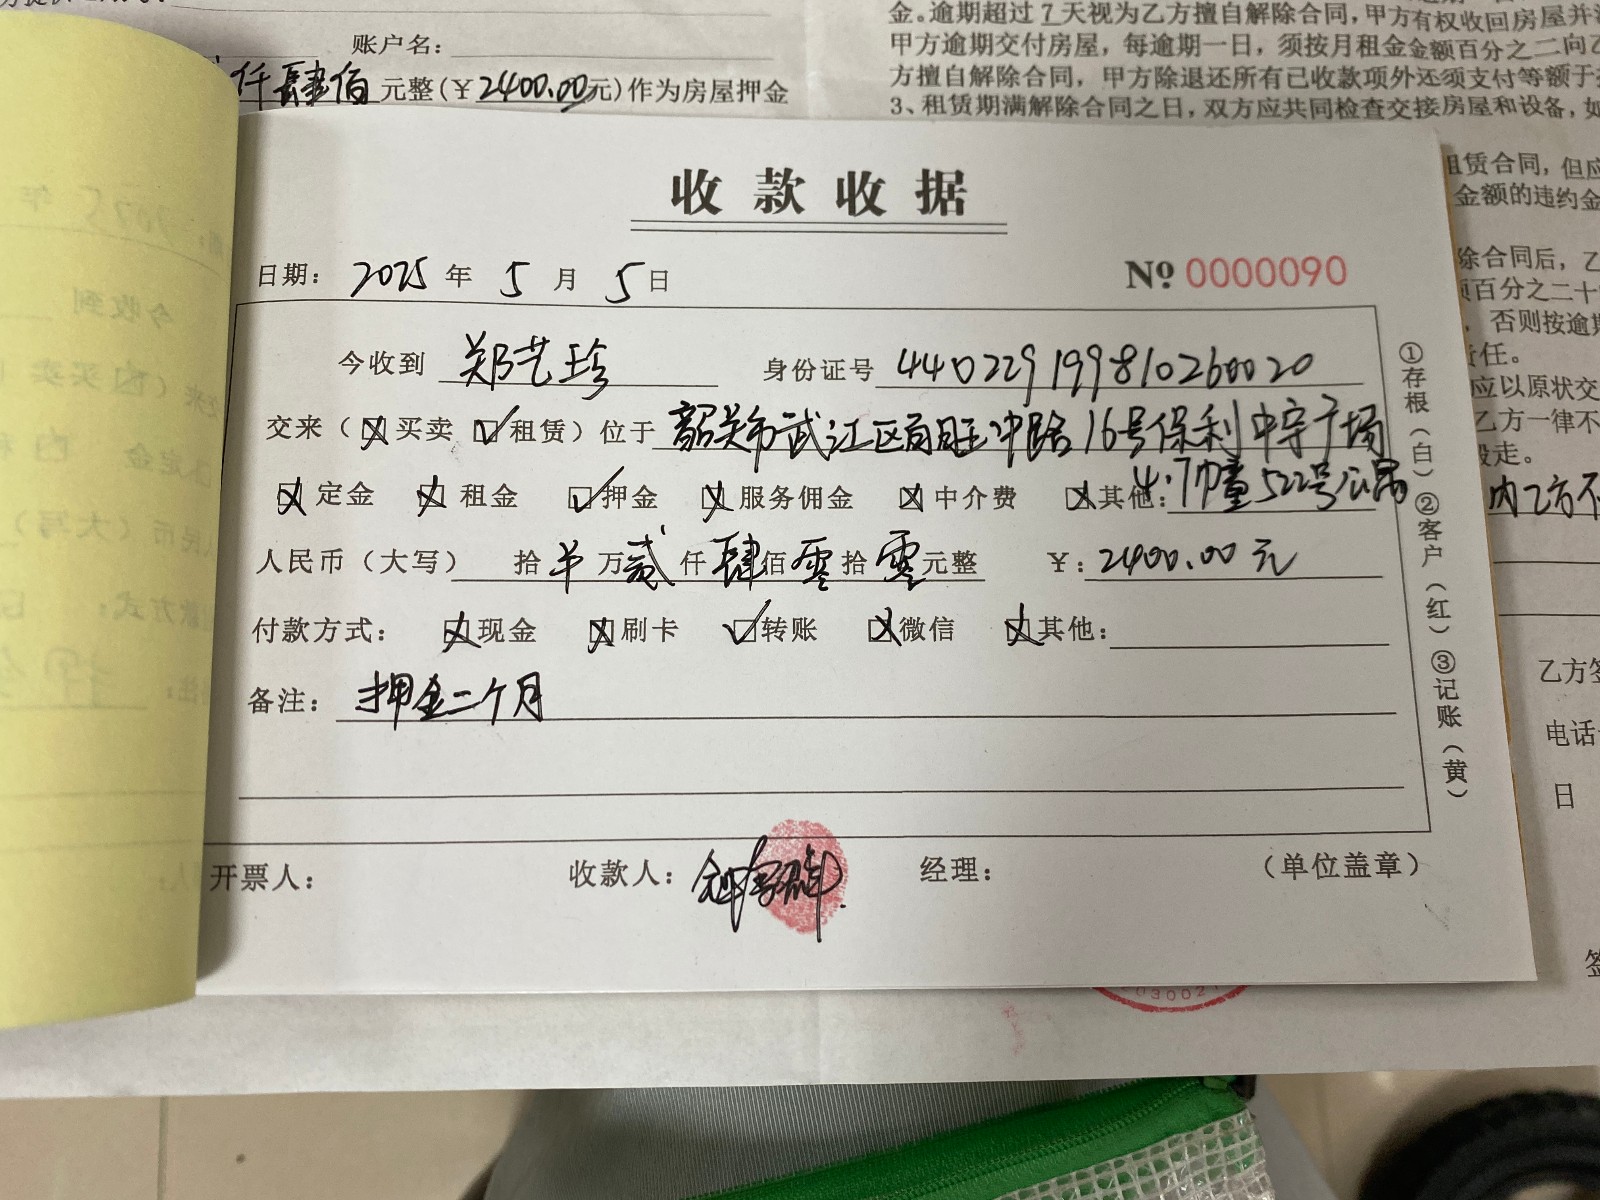 账户名：
仟肆佰元整(￥2400.00元)作为房屋押金
金。逾期超过7天视为乙方擅自解除合同，甲方有权收回房屋并
甲方逾期交付房屋，每逾期一日，须按月租金金额百分之二向乙
方擅自解除合同，甲方除退还所有已收款项外还须支付等额于
3、租赁期满解除合同之日，双方应共同检查交接房屋和设备，如
租赁合同，但应
金额的违约金
除合同后，乙
百分之二十
，否则按逾期
责任。
应以原状交
乙方一律不
搬走。
内乙方不
乙方签
电话
日
签
收款收据
日期：2025年5月5日 № 0000090
今收到 郑艺珍 身份证号 440229199810260020
交来（☒买卖 ☑租赁）位于 韶关市武江区百旺中路16号保利中宇广场
☒定金 ☒租金 ☑押金 ☒服务佣金 ☒中介费 ☒其他：4.7幢522号公寓
人民币（大写） 拾 万贰仟肆佰零拾零元整 ￥：2400.00元
付款方式：☒现金 ☒刷卡 ☑转账 ☒微信 ☒其他：
备注：押金二个月
开票人： 收款人： 经理： （单位盖章）
①存根（白）②客户（红）③记账（黄）